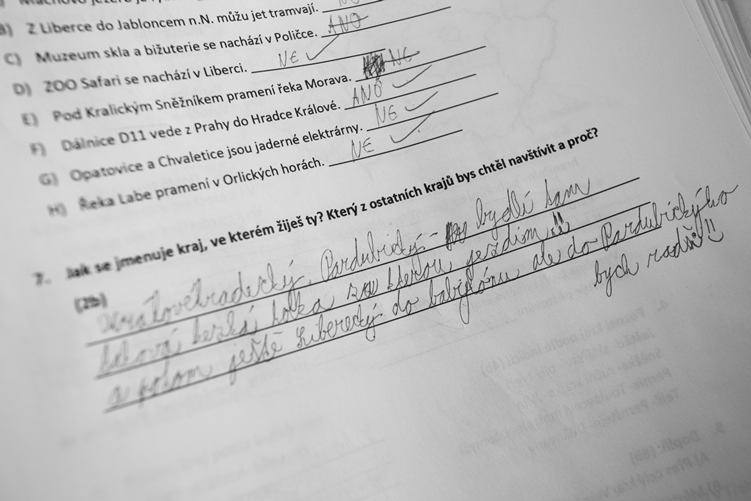 B) Z Liberce do Jabloncem n.N. můžu jet tramvají.
C) Muzeum skla a bižuterie se nachází v Poličce. ANO
D) ZOO Safari se nachází v Liberci. NE ✓
E) Pod Kralickým Sněžníkem pramení řeka Morava. NE
F) Dálnice D11 vede z Prahy do Hradce Králové. ANO ✓
G) Opatovice a Chvaletice jsou jaderné elektrárny. NE ✓
H) Řeka Labe pramení v Orlických horách. NE ✓
7. Jak se jmenuje kraj, ve kterém žiješ ty? Který z ostatních krajů bys chtěl navštívit a proč?
(2b)
Královéhradecký. Pardubický - bydlí tam
taková hezká holka za kterou jezdím !!
a potom ještě Liberecký do babylónu ale do Pardubickýho
bych radši!!